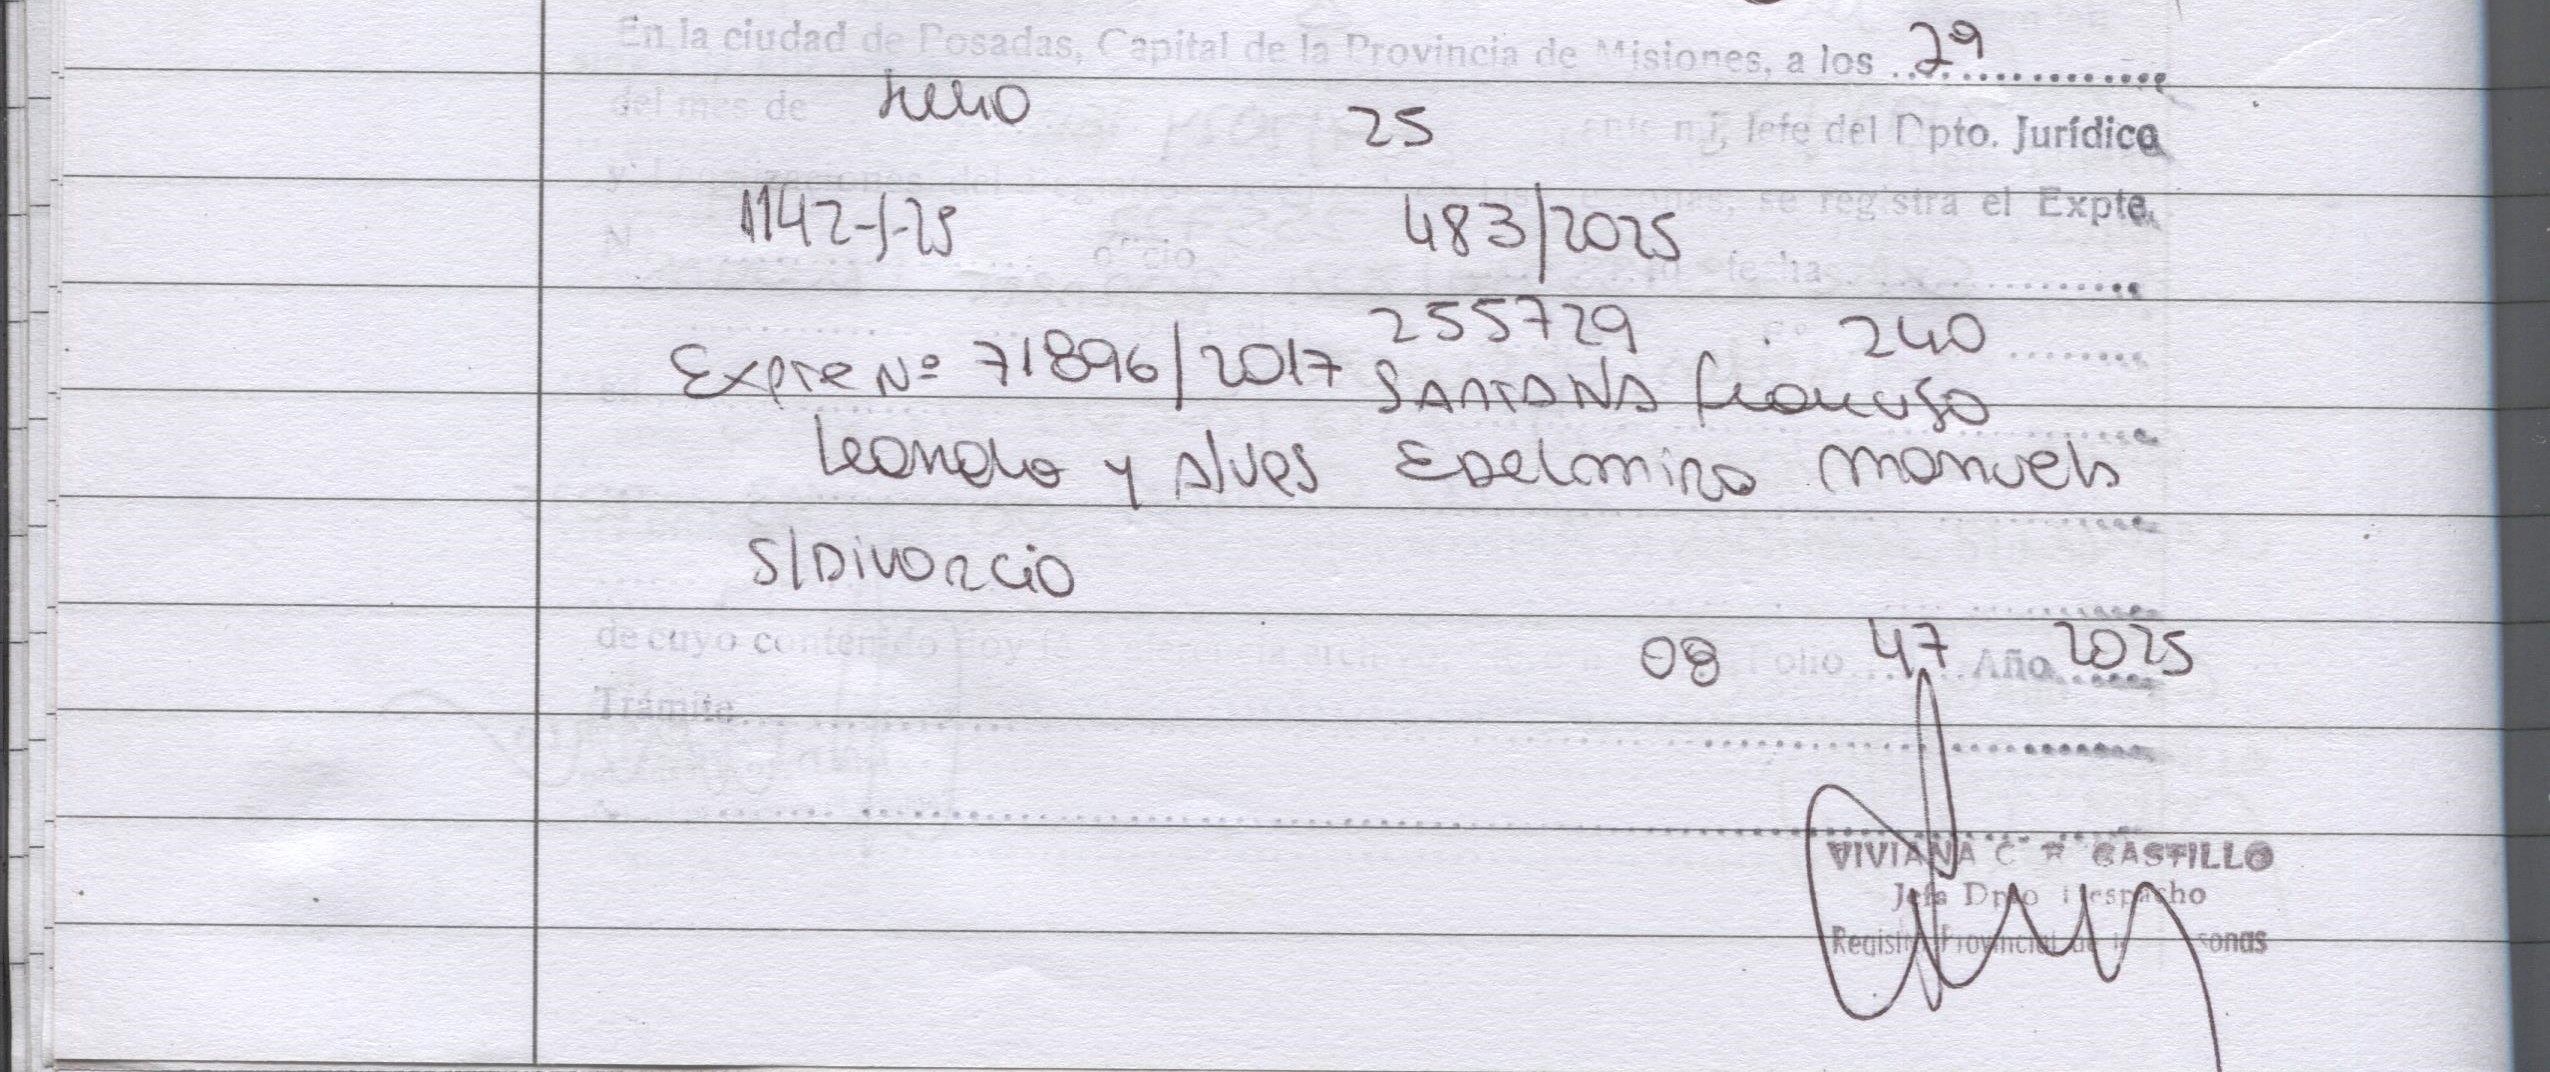 En la ciudad de Posadas, Capital de la Provincia de Misiones, a los 29
del mes de Julio 25 ante mí, Jefe del Dpto. Jurídico
se registra el Expte.
N 1142-J-25 oficio 483/2025 fecha
255729 240
Expte Nº 71896/2017 SANTANA Francisco
Leandro y Alves Edelamira Manuela
S/Divorcio
de cuyo contenido doy 08 Folio 47 Año 2025
Trámite
VIVIANA C R CASTILLO
Jefa Dpto Despacho
Registro Provincial de las Personas